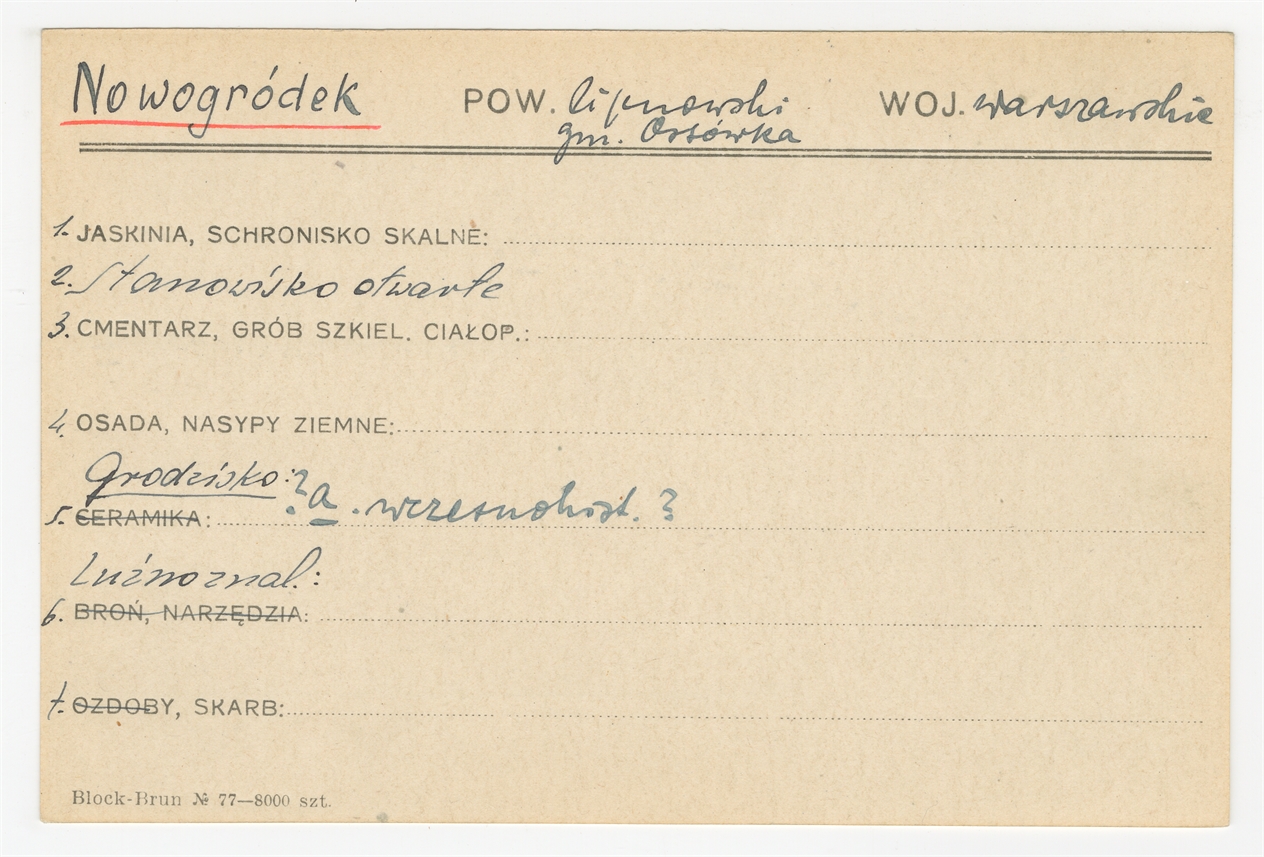 Nowogródek POW. lipnowski WOJ. warszawskie
gm. Ossówka
1. JASKINIA, SCHRONISKO SKALNE:
2. Stanowisko otwarte
3. CMENTARZ, GRÓB SZKIEL. CIAŁOP.:
4. OSADA, NASYPY ZIEMNE:
Grodzisko: ? a. wczesnohist. ?
5. CERAMIKA:
Luźno znal.:
6. BROŃ, NARZĘDZIA:
7. OZDOBY, SKARB:
Block-Brun № 77—8000 szt.